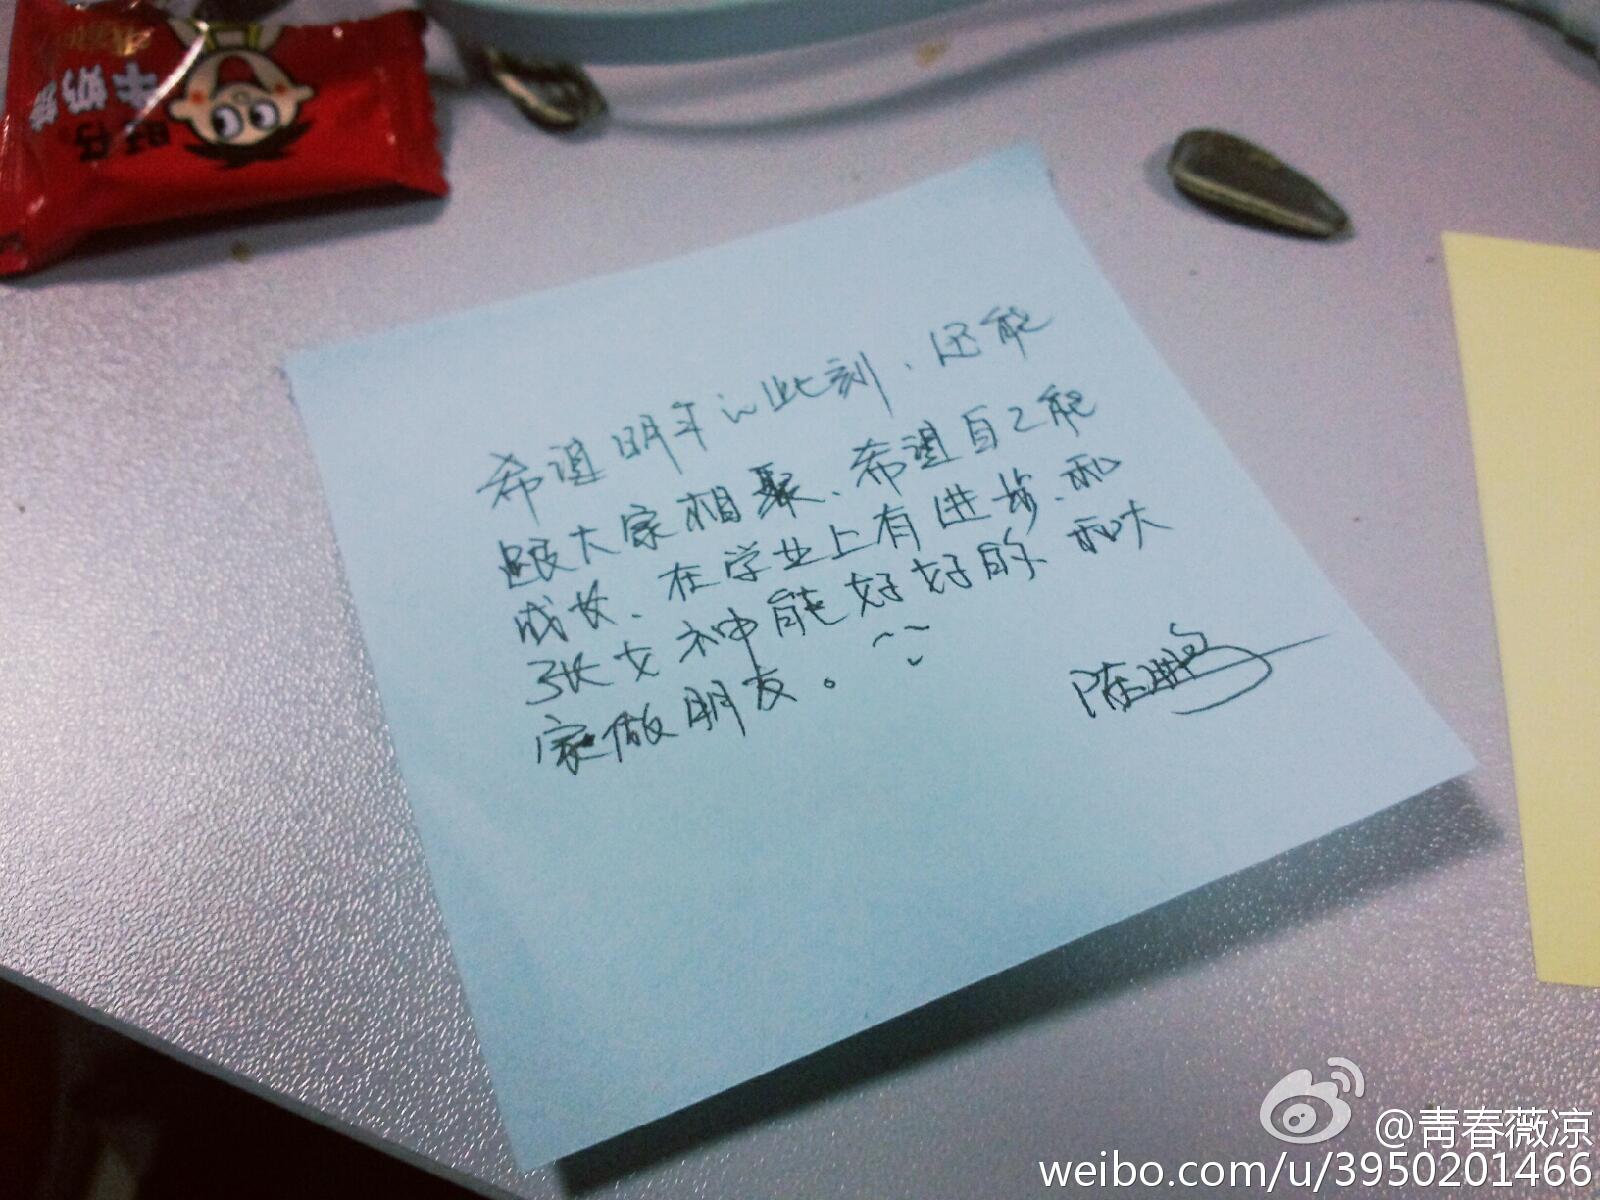 旺仔
牛奶糖
希望明年的此刻、还能
跟大家相聚、希望自己能
成长、在学业上有进步、和
张女神能好好的 和大
家做朋友。
陈鹏
@青春薇凉
weibo.com/u/3950201466